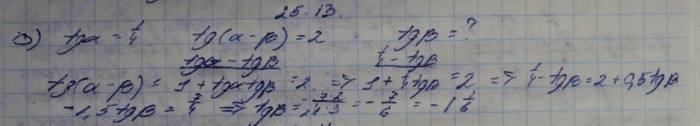 25.13.
3) tgα = 1/4 tg(α - β) = 2 tgβ = ?
tg(α - β) = (tgα - tgβ)/(1 + tgα tgβ) = 2 => (1/4 - tgβ)/(1 + 1/4 tgβ) = 2 => 1/4 - tgβ = 2 + 0,5tgβ
-1,5tgβ = 7/4 => tgβ = -(7·2)/(4·3) = -7/6 = -1 1/6